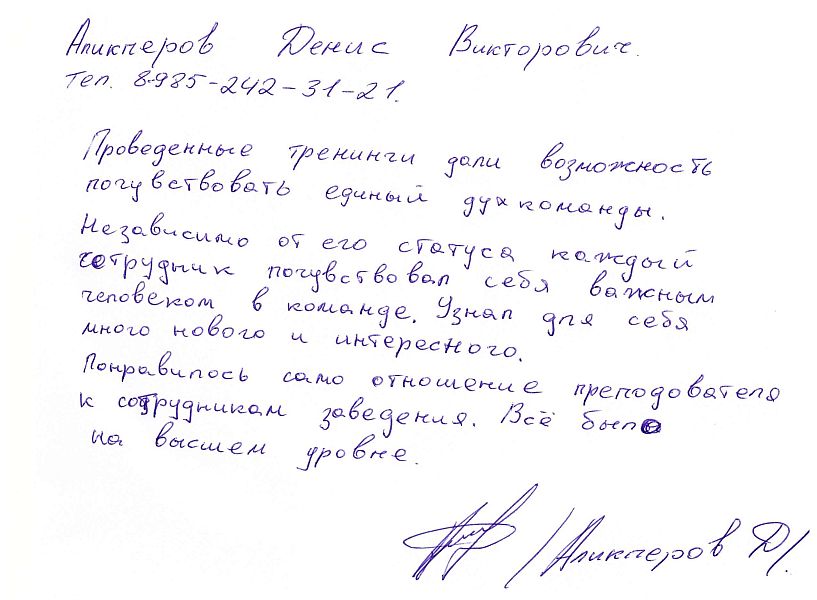 Аликперов Денис Викторович.
Тел. 8-985-242-31-21.
Проведенные тренинги дали возможность
почувствовать единый дух команды.
Независимо от его статуса каждый
сотрудник почувствовал себя важным
человеком в команде. Узнал для себя
много нового и интересного.
Понравилось само отношение преподователя
к сотрудникам заведения. Всё было
на высшем уровне.
/Аликперов Д/.